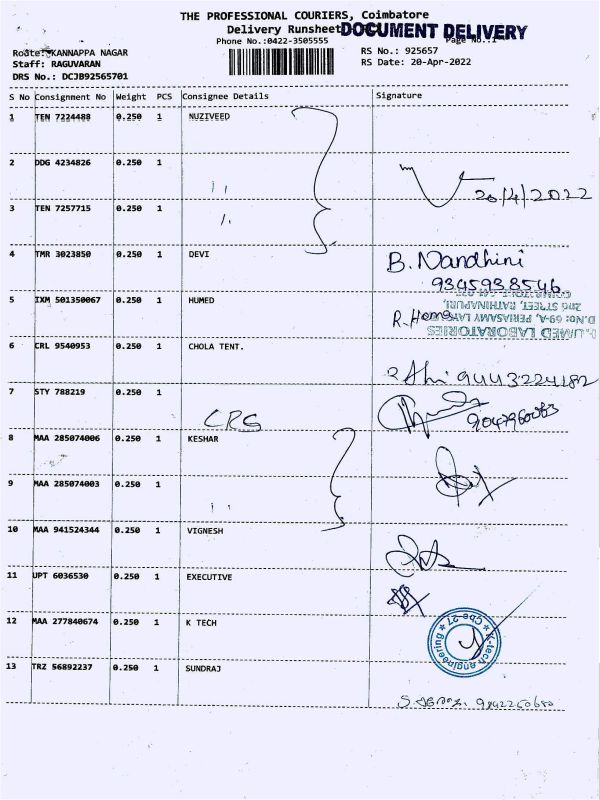 THE PROFESSIONAL COURIERS, Coimbatore
Delivery Runsheet DOCUMENT DELIVERY
Phone No.:0422-3505555 Page No.:1
Route: KANNAPPA NAGAR RS No.: 925657
Staff: RAGUVARAN RS Date: 20-Apr-2022
DRS No.: DCJB92565701
S No Consignment No Weight PCS Consignee Details Signature
1 TEN 7224488 0.250 1 NUZIVEED
2 DDG 4234826 0.250 1
20/4/2022
3 TEN 7257715 0.250 1
4 TMR 3023850 0.250 1 DEVI B. Nandhini
9345938546
5 IXM 501350067 0.250 1 HUMED
2nd STREET, RATHINAPURI,
D.NO: 69-A, PERIASAMY
LABORATORIES
6 CRL 9540953 0.250 1 CHOLA TENT.
9443224182
7 STY 788219 0.250 1
CRG
8 MAA 285074006 0.250 1 KESHAR
9 MAA 285074003 0.250 1
10 MAA 941524344 0.250 1 VIGNESH
11 UPT 6036530 0.250 1 EXECUTIVE
12 MAA 277840674 0.250 1 K TECH
K-tech engineering * Cbe 27 *
13 TRZ 56892237 0.250 1 SUNDRAJ